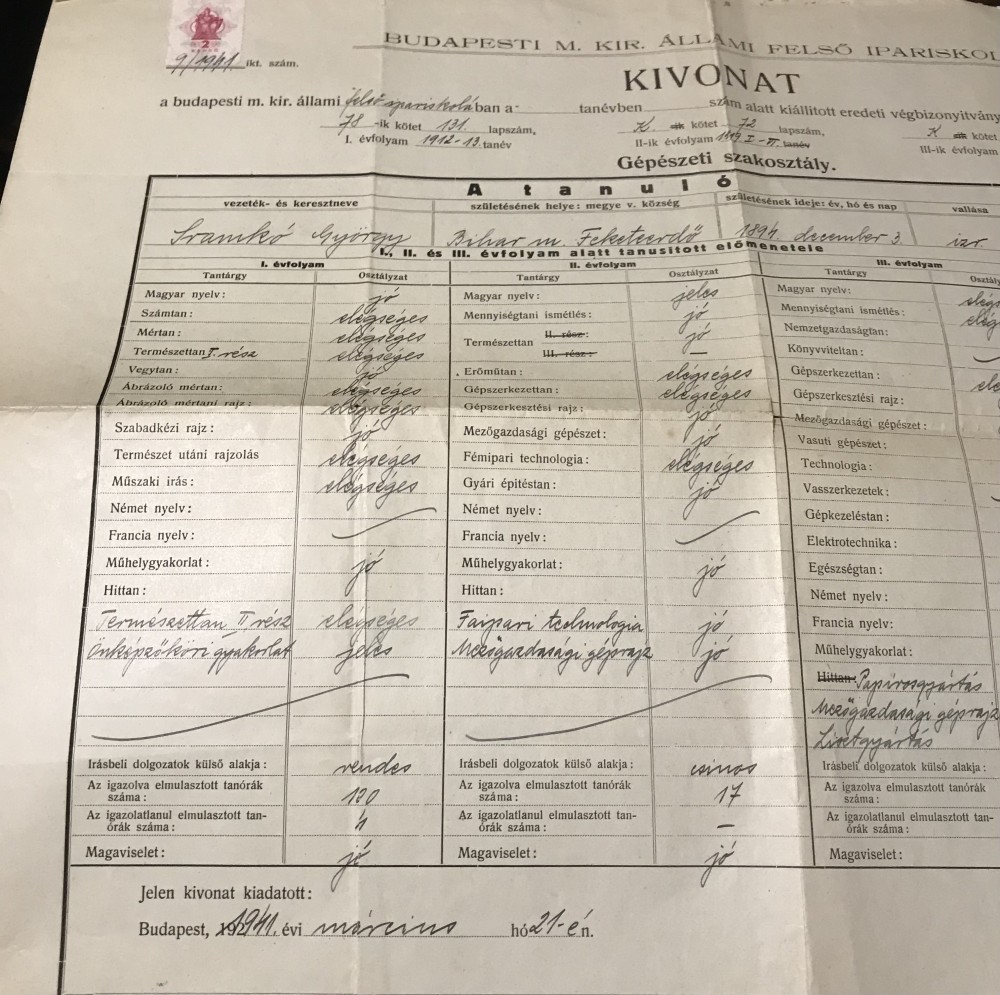 2
9/1941 ikt. szám.
BUDAPESTI M. KIR. ÁLLAMI FELSŐ IPARISKOL
KIVONAT
a budapesti m. kir. állami felső ipariskolában a tanévben szám alatt kiállított eredeti végbizonyítvány
78 -ik kötet 131. lapszám, K. ik kötet 72 lapszám, K ik kötet
I. évfolyam 1912-13. tanév II-ik évfolyam 1919 I-II. tanév III-ik évfolyam
Gépészeti szakosztály.
A tanuló
vezeték- és keresztneve születésének helye: megye v. község születésének ideje: év, hó és nap vallása
Sramkó György Bihar m. Feketeerdő 1894. december 3. izr.
I., II. és III. évfolyam alatt tanusított előmenetele
I. évfolyam II. évfolyam III. évfolyam
Tantárgy Osztályzat Tantárgy Osztályzat Tantárgy Osztály
Magyar nyelv: jó Magyar nyelv: jeles Magyar nyelv: elég
Számtan: elégséges Mennyiségtani ismétlés: jó Mennyiségtani ismétlés: elég
Mértan: elégséges Természettan II. rész: jó Nemzetgazdaságtan:
Természettan I. rész elégséges III. rész: — Könyvviteltan:
Vegytan: jó Erőműtan: elégséges Gépszerkezettan:
Ábrázoló mértan: elégséges Gépszerkezettan: elégséges Gépszerkesztési rajz:
Ábrázoló mértani rajz: elégséges Gépszerkesztési rajz: jó Mezőgazdasági gépészet:
Szabadkézi rajz: jó Mezőgazdasági gépészet: jó Vasuti gépészet:
Természet utáni rajzolás elégséges Fémipari technologia: elégséges Technologia:
Műszaki irás: elégséges Gyári épitéstan: jó Vasszerkezetek:
Német nyelv: Német nyelv: Gépkezeléstan:
Francia nyelv: Francia nyelv: Elektrotechnika:
Műhelygyakorlat: jó Műhelygyakorlat: jó Egészségtan:
Hittan: Hittan: Német nyelv:
Természettan II rész elégséges Faipari technologia jó Francia nyelv:
Önképzőköri gyakorlat jeles Mezőgazdasági géprajz jó Műhelygyakorlat:
Hittan: Papirosgyártás
Mezőgazdasági géprajz
Lisztgyártás
Irásbeli dolgozatok külső alakja: rendes Irásbeli dolgozatok külső alakja: csinos Irásbeli dolgozatok külső alakja:
Az igazolva elmulasztott tanórák száma: 120 Az igazolva elmulasztott tanórák száma: 17 Az igazolva elmulasztott tanórák száma:
Az igazolatlanul elmulasztott tanórák száma: 4 Az igazolatlanul elmulasztott tanórák száma: — Az igazolatlanul elmulasztott tanórák száma:
Magaviselet: jó Magaviselet: jó Magaviselet:
Jelen kivonat kiadatott:
Budapest, 1941. évi március hó 21-én.